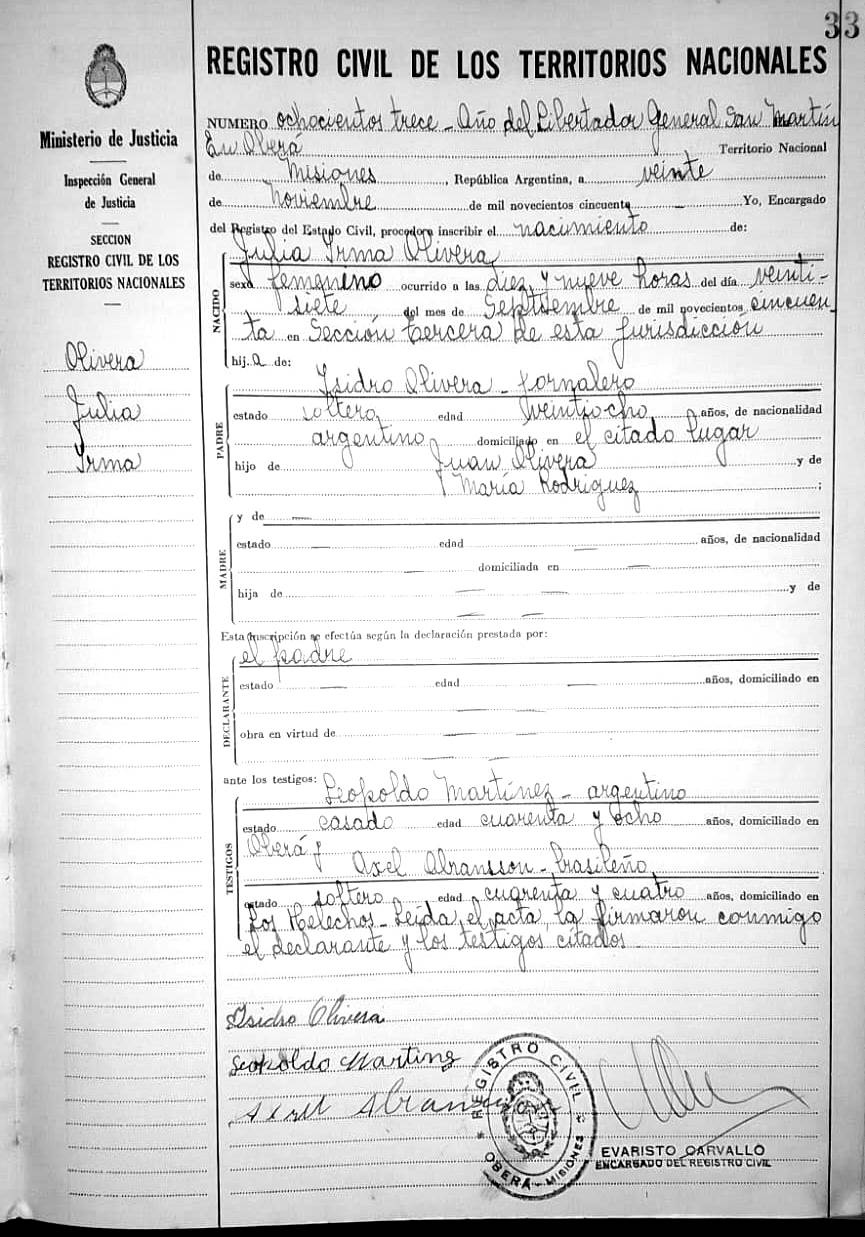 33
REGISTRO CIVIL DE LOS TERRITORIOS NACIONALES
Ministerio de Justicia
Inspección General
de Justicia
SECCION
REGISTRO CIVIL DE LOS
TERRITORIOS NACIONALES
Olivera
Julia
Irma
NUMERO ochocientos trece - Año del Libertador General San Martín
En Oberá Territorio Nacional
de Misiones, República Argentina, a veinte
de Noviembre de mil novecientos cincuenta Yo, Encargado
del Registro del Estado Civil, procedo a inscribir el nacimiento de:
NACIDO
Julia Irma Olivera
sexo femenino ocurrido a las diez y nueve horas del día veinti-
siete del mes de Septiembre de mil novecientos cincuen
ta en Sección tercera de esta jurisdicción
hija de:
PADRE
Isidro Olivera - Jornalero
estado soltero edad veintiocho años, de nacionalidad
argentino domiciliado en el citado lugar
hijo de Juan Olivera y de
María Rodriguez ;
MADRE
y de —
estado — edad — años, de nacionalidad
— domiciliada en —
hija de — — y de
— —
Esta inscripción se efectúa según la declaración prestada por:
DECLARANTE
el padre
estado — edad — años, domiciliado en
— —
obra en virtud de — —
— —
ante los testigos:
TESTIGOS
Leopoldo Martínez - argentino
estado casado edad cuarenta y ocho años, domiciliado en
Oberá y Axel Abransson - brasileño
estado soltero edad cuarenta y cuatro años, domiciliado en
Los Helechos - Leída el acta, la firmaron conmigo
el declarante y los testigos citados
Isidro Olivera
Leopoldo Martinez
REGISTRO CIVIL
OBERÁ - MISIONES
EVARISTO CARVALLO
ENCARGADO DEL REGISTRO CIVIL